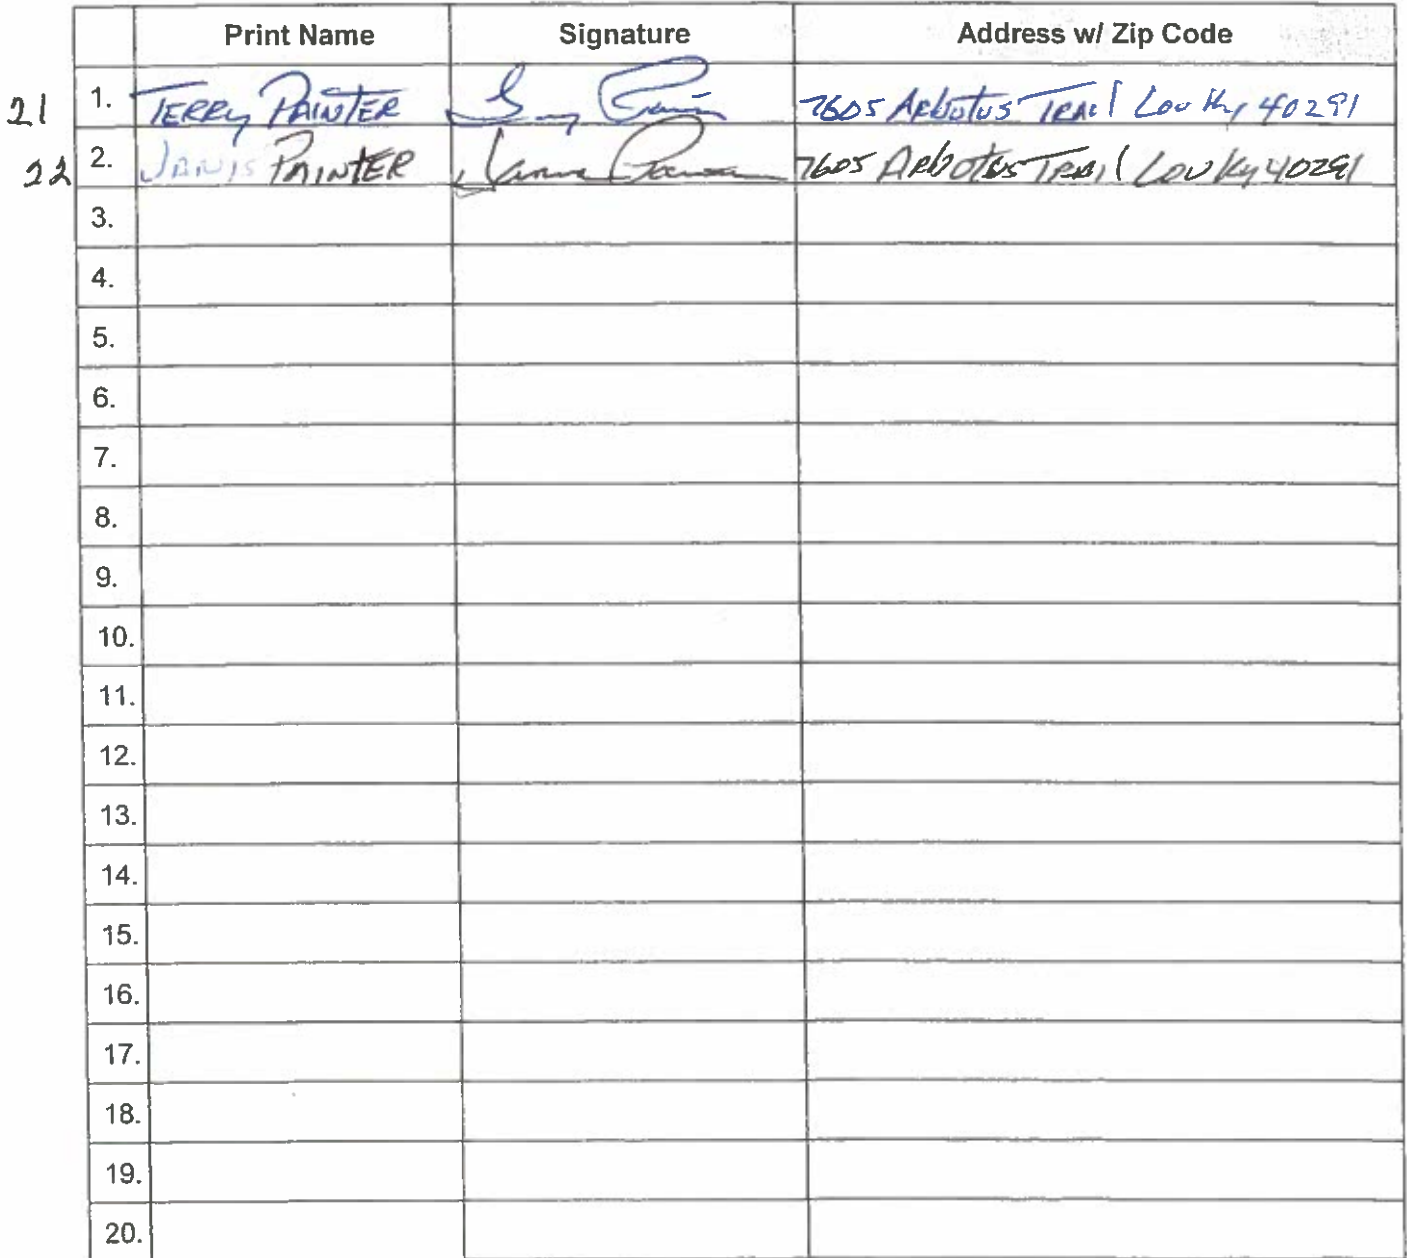 Print Name Signature Address w/ Zip Code
21 1. TERRY PAINTER 7605 Arbutus Trail Lou Ky 40291
22 2. JANIS PAINTER 7605 Arbotus Trail Lou Ky 40291
3.
4.
5.
6.
7.
8.
9.
10.
11.
12.
13.
14.
15.
16.
17.
18.
19.
20.